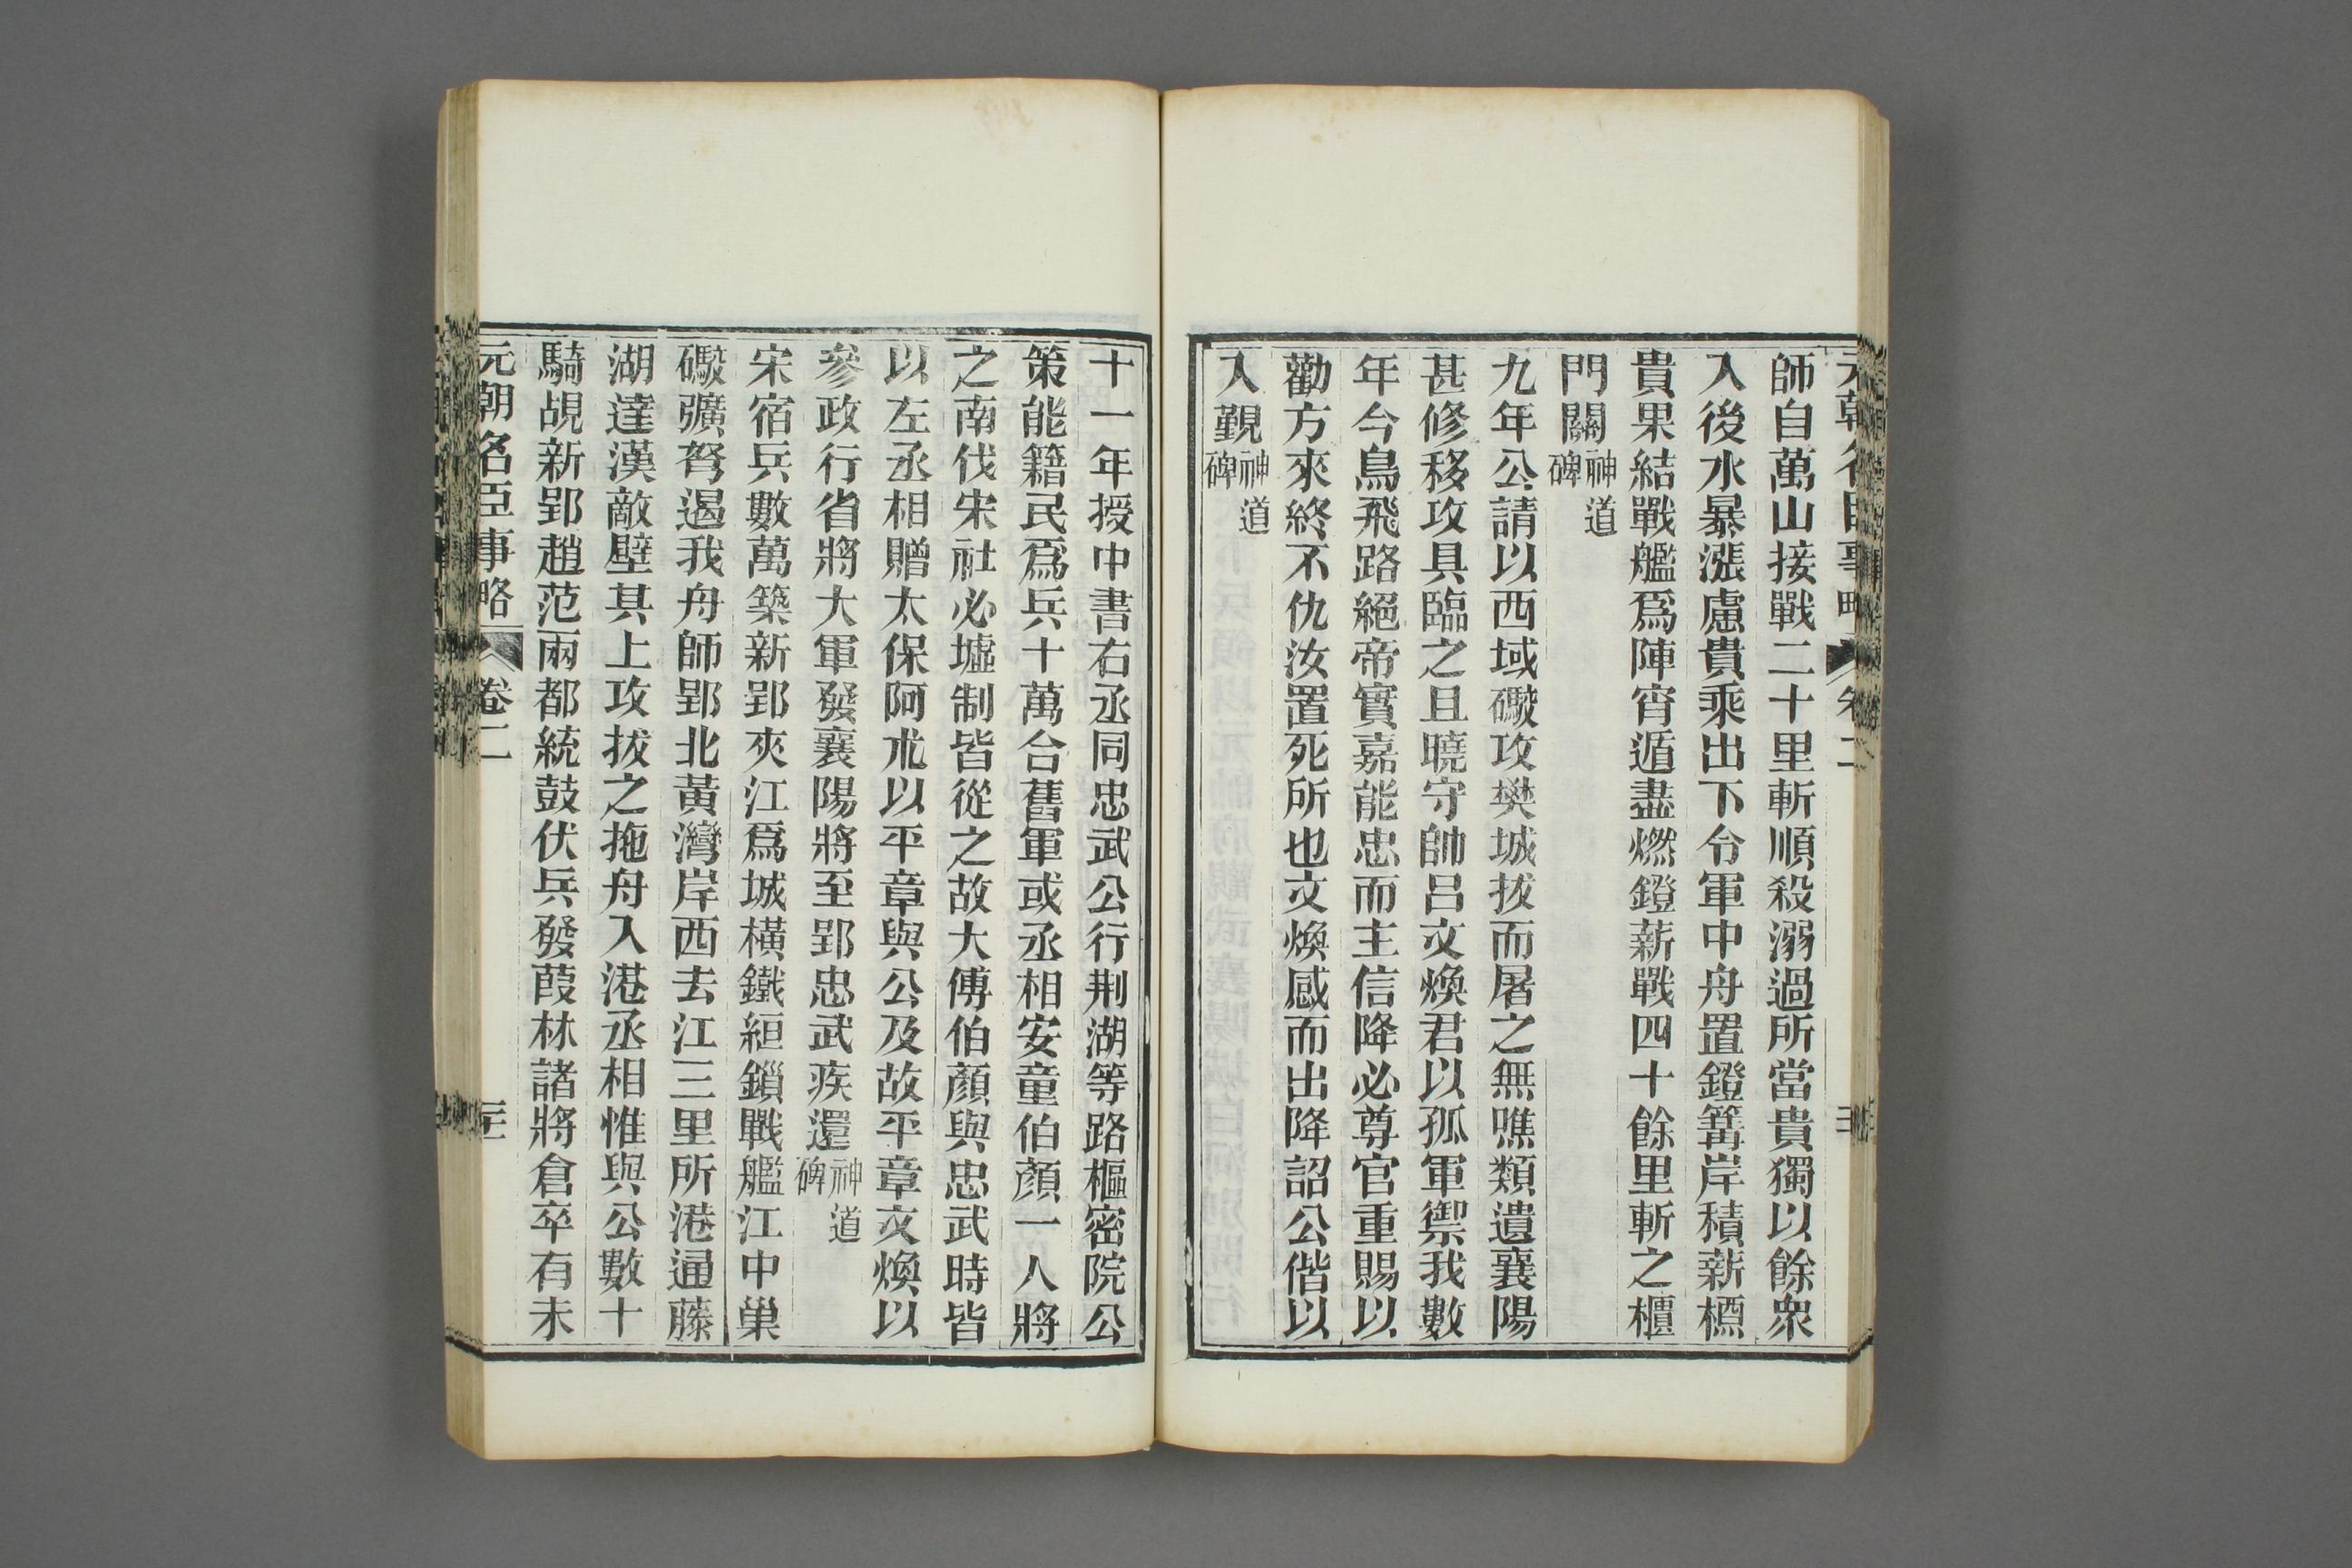 師自萬山接戰二十里斬順殺溺過所當貴獨以餘衆
入後水暴漲慮貴乘出下令軍中舟置鐙篝岸積薪槱
貴果結戰艦爲陣宵遁盡燃鐙薪戰四十餘里斬之櫃
門關神道碑
九年公請以西域礮攻樊城拔而屠之無噍類遺襄陽
甚修移攻具臨之且曉守帥呂文煥君以孤軍禦我數
年今鳥飛路絕帝實嘉能忠而主信降必尊官重賜以
勸方來終不仇汝置死所也文煥感而出降詔公偕以
入覲神道碑
十一年授中書右丞同忠武公行荆湖等路樞密院公
策能籍民爲兵十萬合舊軍或丞相安童伯顏一人將
之南伐宋社必墟制皆從之故大傅伯顏與忠武時皆
以左丞相贈太保阿朮以平章與公及故平章文煥以
參政行省將大軍發襄陽將至郢忠武疾還神道碑
宋宿兵數萬築新郢夾江爲城橫鐵絙鎖戰艦江中巢
礮彍弩遏我舟師郢北黃灣岸西去江三里所港通藤
湖達漢敵壁其上攻拔之拖舟入港丞相惟與公數十
騎覘新郢趙范兩都統鼓伏兵發葭林諸將倉卒有未
元朝名臣事略 卷二